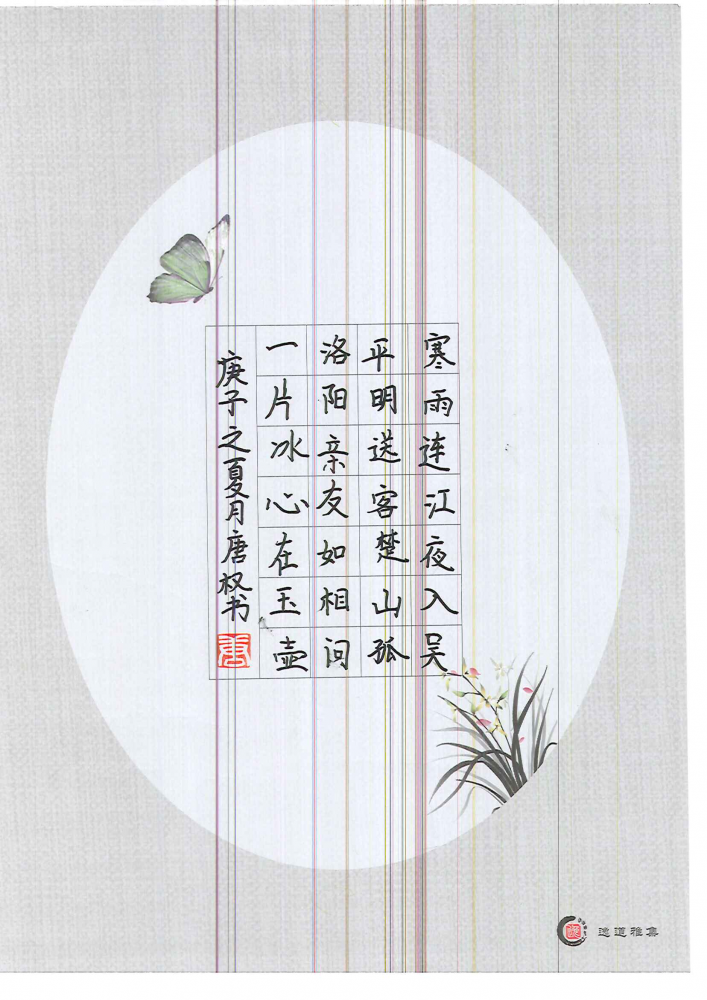 寒雨连江夜入吴
平明送客楚山孤
洛阳亲友如相问
一片冰心在玉壶
庚子之夏月唐权书
唐
逸道雅集